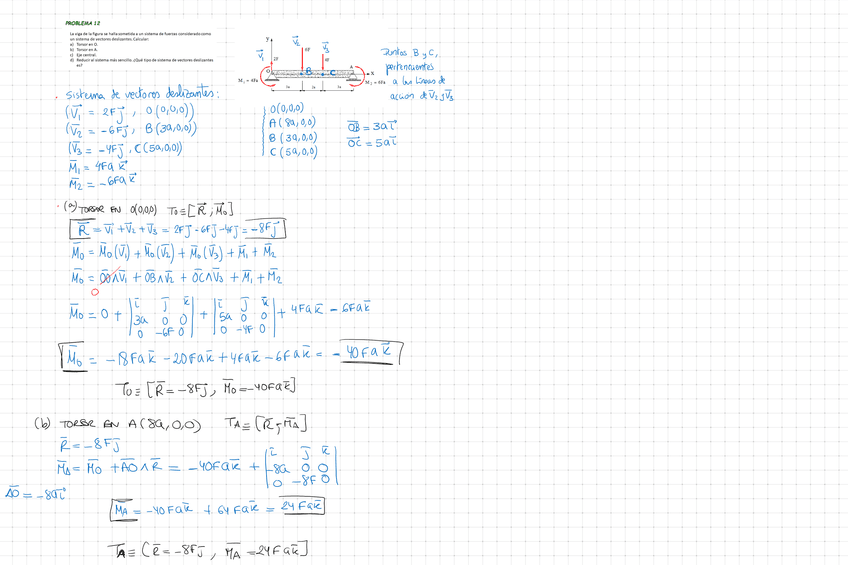 PROBLEMA 12
La viga de la figura se halla sometida a un sistema de fuerzas considerado como
un sistema de vectores deslizantes. Calcular:
a) Torsor en O.
b) Torsor en A.
c) Eje central.
d) Reducir al sistema más sencillo. ¿Qué tipo de sistema de vectores deslizantes
es?
V⃗1 V⃗2 V⃗3
y
2F 6F 4F
O B C A x
M1 = 4Fa M2 = 6Fa
3a 2a 3a
Puntos B y C,
pertenecientes
a las líneas de
acción de V⃗2 y V⃗3
Sistema de vectores deslizantes:
(V⃗1 = 2Fj⃗, O(0,0,0))
(V⃗2 = -6Fj⃗, B(3a,0,0))
(V⃗3 = -4Fj⃗, C(5a,0,0))
M̄1 = 4Fa k⃗
M̄2 = -6Fa k⃗
O(0,0,0)
A(8a,0,0)
B(3a,0,0)
C(5a,0,0)
OB = 3a i⃗
OC = 5a i⃗
(a) TORSOR EN O(0,0,0) To ≡ [R⃗ ; M⃗o]
R⃗ = V⃗1 + V⃗2 + V⃗3 = 2Fj⃗ - 6Fj⃗ - 4Fj⃗ = -8Fj⃗
M̄o = M̄o(V⃗1) + M̄o(V⃗2) + M̄o(V⃗3) + M̄1 + M̄2
M̄o = OO∧V̄1 + OB∧V̄2 + OC∧V̄3 + M̄1 + M̄2
0
M̄o = 0 + |i j k; 3a 0 0; 0 -6F 0| + |i j k; 5a 0 0; 0 -4F 0| + 4Fa k̄ - 6Fa k̄
M̄o = -18Fa k̄ - 20Fa k̄ + 4Fa k̄ - 6Fa k̄ = -40Fa k̄
To ≡ [R̄ = -8Fj̄, M̄o = -40Fa k̄]
(b) TORSOR EN A(8a,0,0) TA ≡ [R̄; M̄A]
R̄ = -8Fj̄
M̄A = M̄o + AO∧R̄ = -40Fa k̄ + |i j k; -8a 0 0; 0 -8F 0|
AO = -8a i⃗
M̄A = -40Fa k̄ + 64Fa k̄ = 24Fa k̄
TA ≡ [R̄ = -8Fj̄, M̄A = 24Fa k̄]